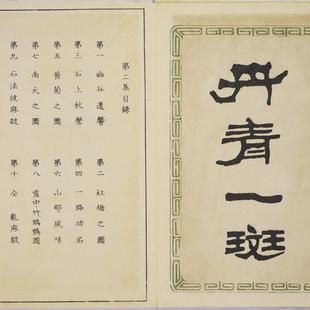 丹青一斑
第二集目錄
第一 幽谷遺馨 第二 紅梅之圖
第三 石上秋聲 第四 一路功名
第五 黃菊之圖 第六 風味
第七 南天之圖 第八 雪中竹 圖
第九 石法披麻皴 第十 仝 亂麻皴